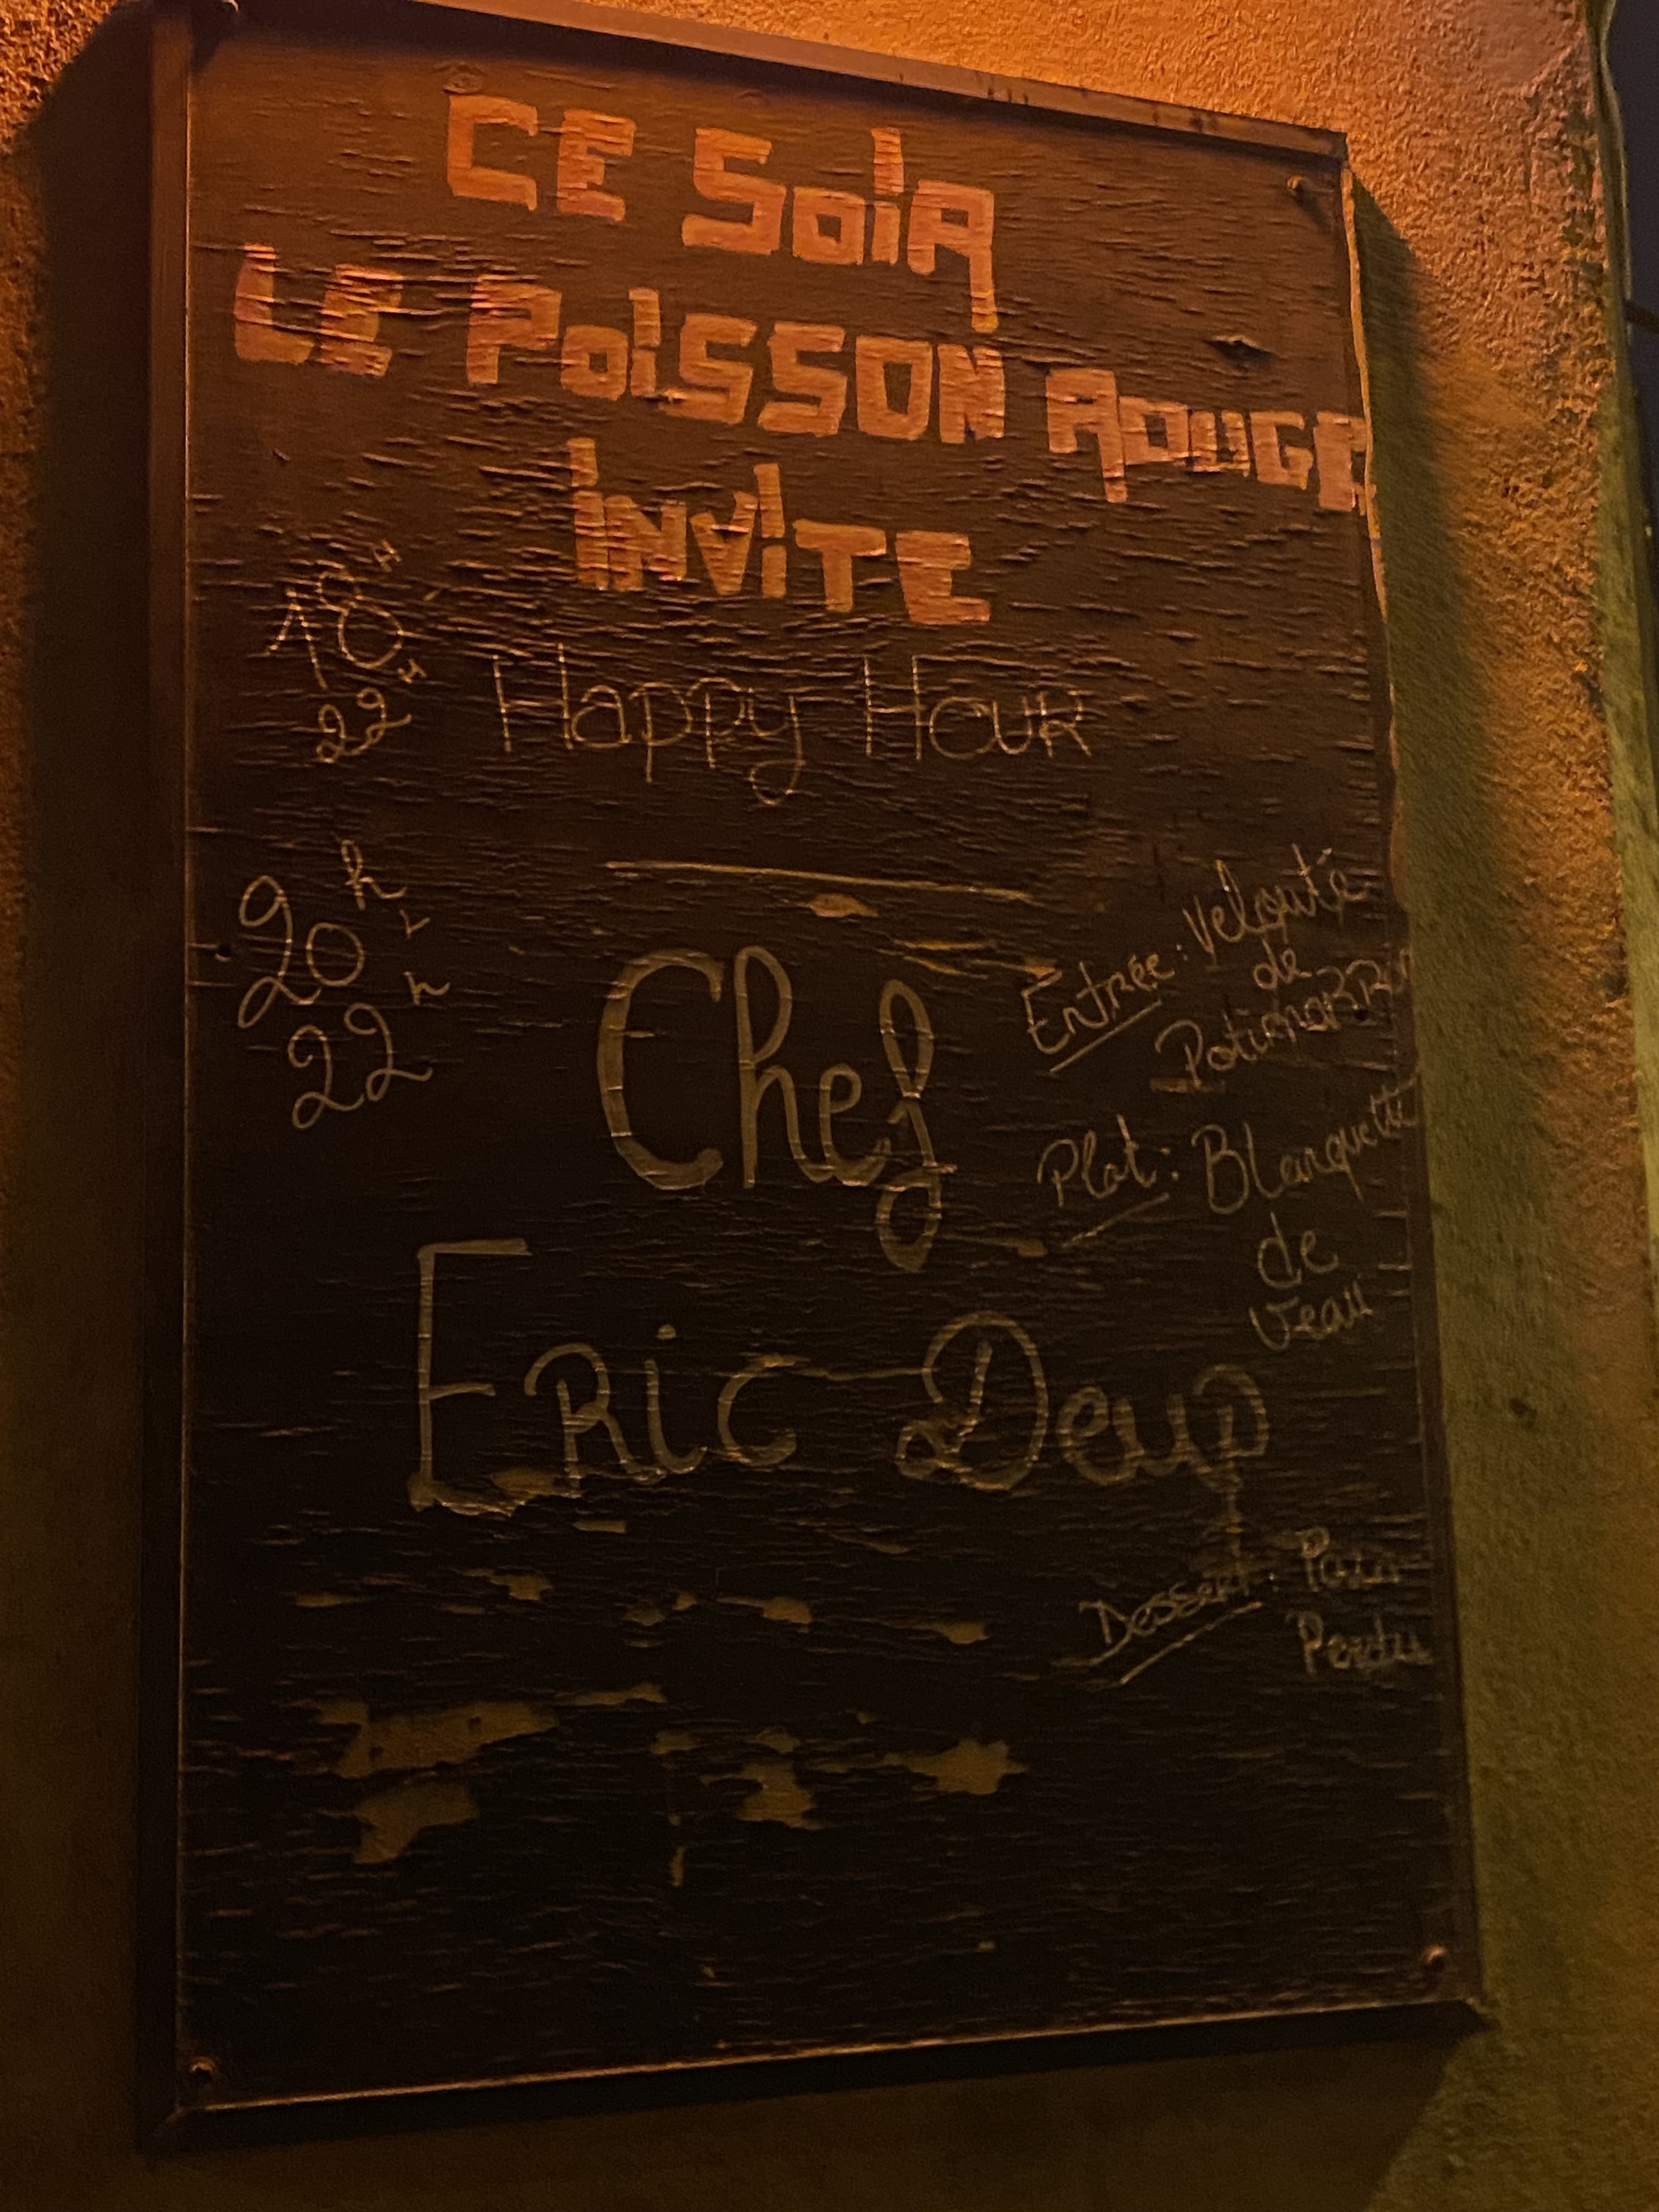 CE SOiR
LE POiSSON ROUGE
iNViTE
18H
22H
Happy Hour
20h
22h
Chef
Eric Deup
Entrée: Velouté
de
Plat: Blanquette
de
veau
Dessert: Pain
Perdu